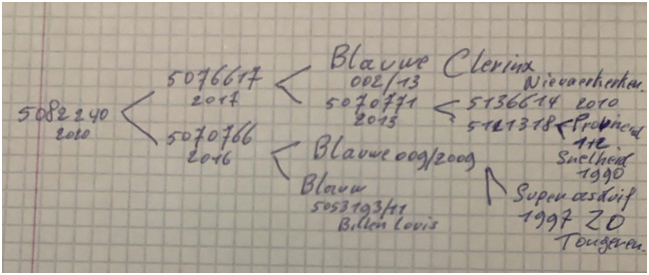 5082240
2020
5076617
2017
5070766
2016
Blauwe Clerinx
002/13
Niewerkerken.
5070771
2013
Blauwe 009/2009
Blauw
5053193/11
Billen Louis
5136614 2010
5121318
Provinciaal
112
Snelheid
1990
Superasduif
1997 ZO
Tongeren.